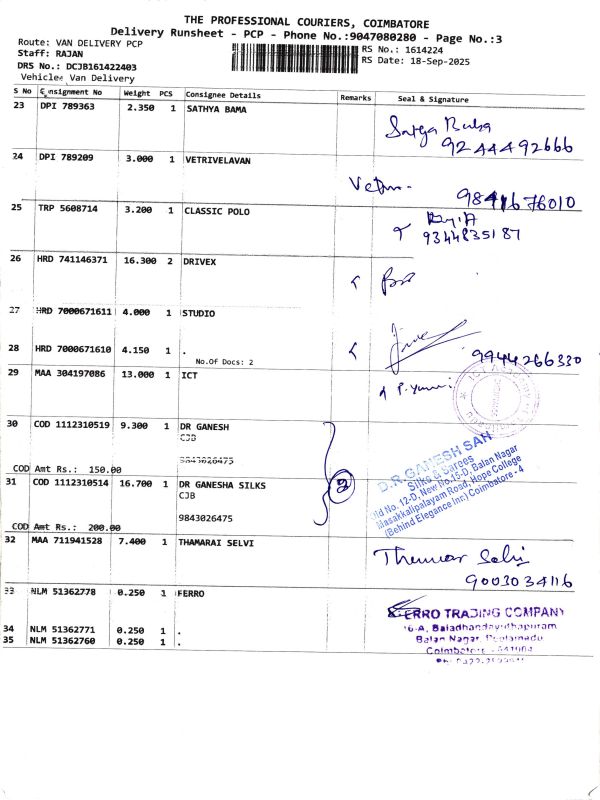 THE PROFESSIONAL COURIERS, COIMBATORE
Delivery Runsheet - PCP - Phone No.:9047080280 - Page No.:3
Route: VAN DELIVERY PCP
RS No.: 1614224
Staff: RAJAN
RS Date: 18-Sep-2025
DRS No.: DCJB161422403
Vehicle: Van Delivery
S No Consignment No Weight PCS Consignee Details Remarks Seal & Signature
23 DPI 789363 2.350 1 SATHYA BAMA
9244492666
24 DPI 789209 3.000 1 VETRIVELAVAN
9841676010
25 TRP 5608714 3.200 1 CLASSIC POLO
9344835187
26 HRD 741146371 16.300 2 DRIVEX
27 HRD 7000671611 4.000 1 STUDIO
28 HRD 7000671610 4.150 1 .
No.Of Docs: 2
9944266330
29 MAA 304197086 13.000 1 ICT
30 COD 1112310519 9.300 1 DR GANESH
CJB
9843026475
COD Amt Rs.: 150.00
2
D.R.GANESH SAH
Silks & Sarees
Old No. 12-D, New No.15-D, Balan Nagar
Masakkalipalayam Road, Hope College
(Behind Elegance Inn) Coimbatore - 4
31 COD 1112310514 16.700 1 DR GANESHA SILKS
CJB
9843026475
COD Amt Rs.: 200.00
32 MAA 711941528 7.400 1 THAMARAI SELVI
Selvi
9003034116
33 NLM 51362778 0.250 1 FERRO
FERRO TRADING COMPANY
34 NLM 51362771 0.250 1 .
35 NLM 51362760 0.250 1 .
Balan Nagar,
Coimbatore